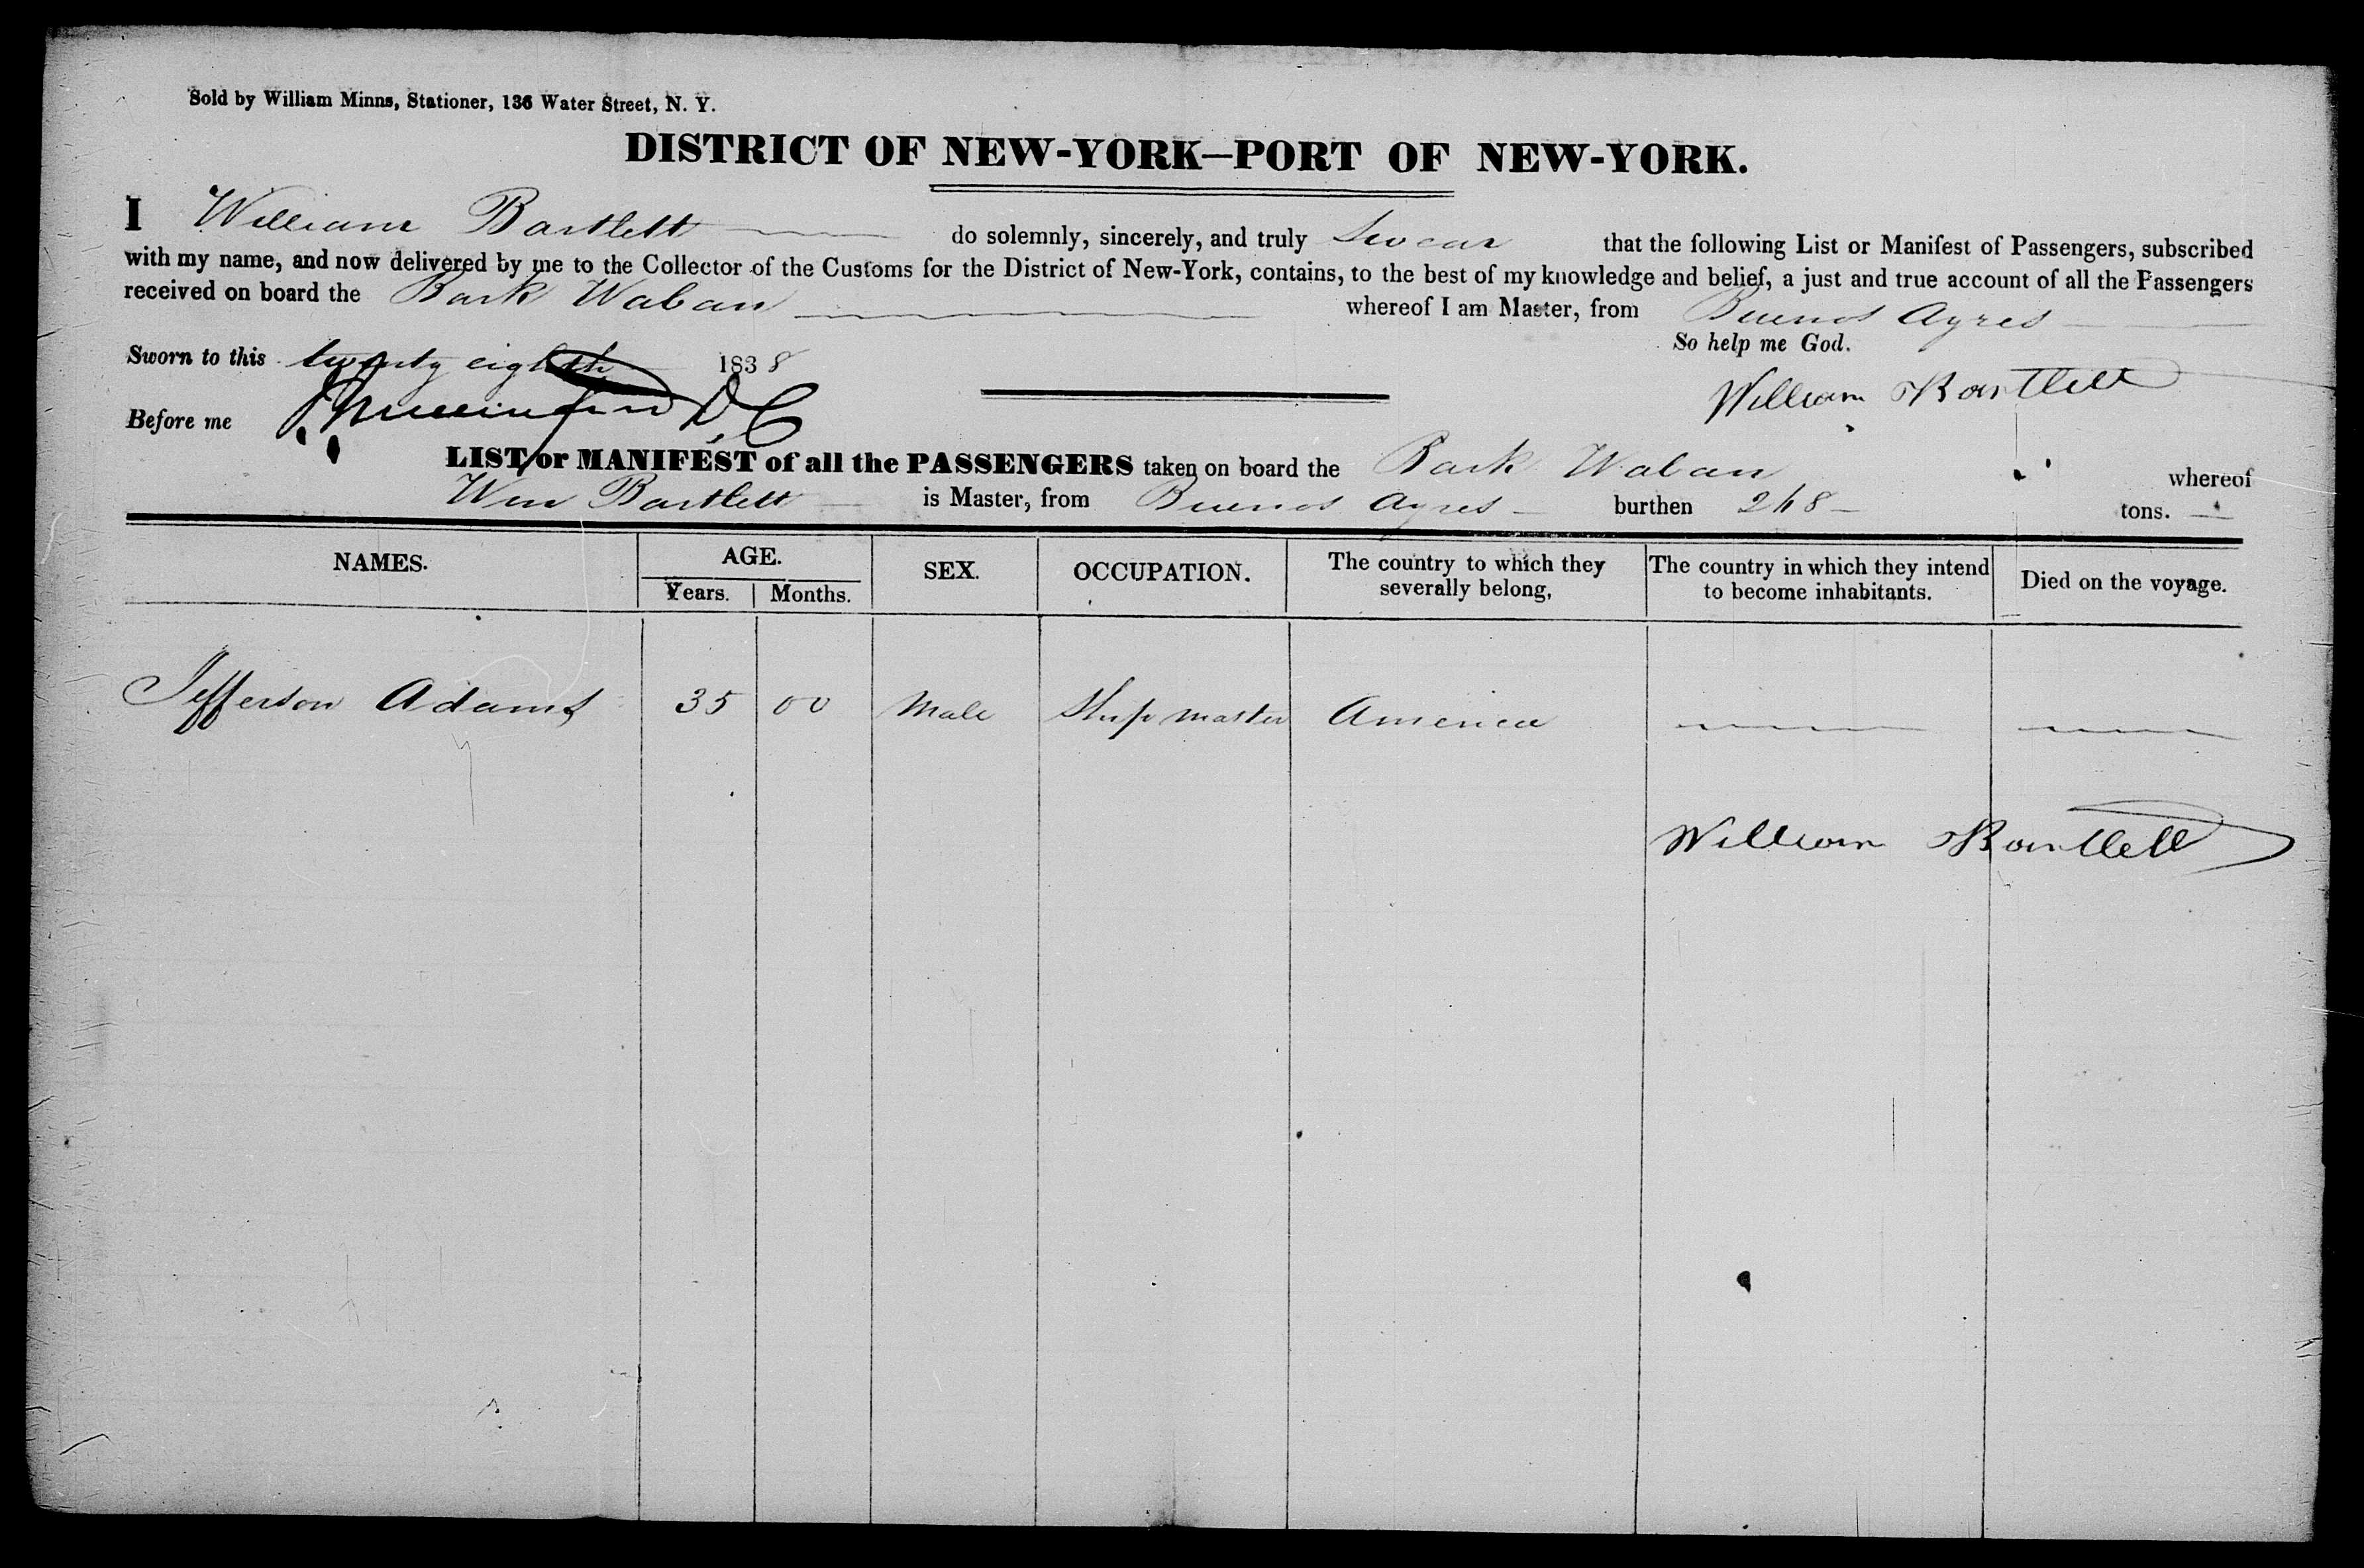 Sold by William Minns, Stationer, 136 Water Street, N. Y.
DISTRICT OF NEW-YORK—PORT OF NEW-YORK.
I William Bartlett do solemnly, sincerely, and truly Swear that the following List or Manifest of Passengers, subscribed
with my name, and now delivered by me to the Collector of the Customs for the District of New-York, contains, to the best of my knowledge and belief, a just and true account of all the Passengers
received on board the Bark Waban whereof I am Master, from Buenos Ayres
So help me God.
Sworn to this twenty eighth 1838
William Bartlett
Before me D C
LIST or MANIFEST of all the PASSENGERS taken on board the Bark Waban whereof
Wm Bartlett is Master, from Buenos Ayres burthen 268 tons.
NAMES. AGE. SEX. OCCUPATION. The country to which they severally belong, The country in which they intend to become inhabitants. Died on the voyage.
Years. Months.
Jefferson Adams 35 00 Male Ship master America
William Bartlett